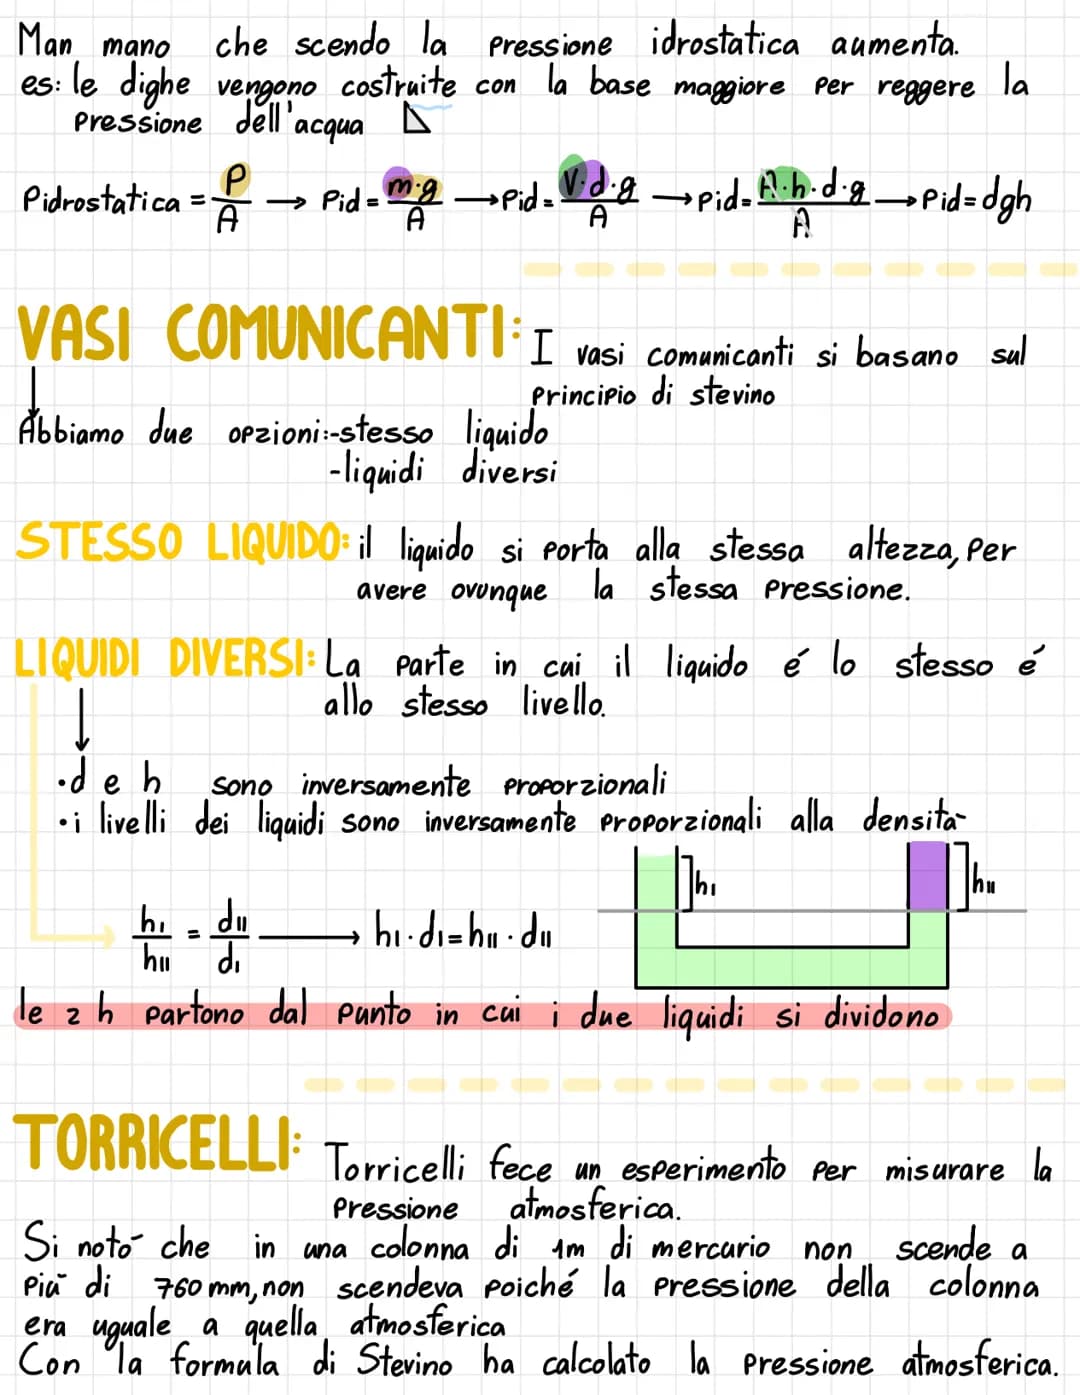 Man mano che scendo la pressione idrostatica aumenta.
es: le dighe vengono costruite con la base maggiore per reggere la
pressione dell'acqua
Pidrostatica = P/A → Pid = m·g/A → Pid = V·d·g/A → pid = A·h·d·g/A → Pid = dgh
VASI COMUNICANTI: I vasi comunicanti si basano sul
principio di stevino
Abbiamo due opzioni:-stesso liquido
-liquidi diversi
STESSO LIQUIDO: il liquido si porta alla stessa altezza, per
avere ovunque la stessa pressione.
LIQUIDI DIVERSI: La parte in cui il liquido é lo stesso é
allo stesso livello.
·d e h sono inversamente proporzionali
·i livelli dei liquidi sono inversamente proporzionali alla densitá
hI
hII
hI/hII = dII/dI → hI·dI=hII·dII
le 2 h partono dal punto in cui i due liquidi si dividono
TORRICELLI: Torricelli fece un esperimento per misurare la
pressione atmosferica.
Si notó che in una colonna di 1m di mercurio non scende a
piú di 760 mm, non scendeva poiché la pressione della colonna
era uguale a quella atmosferica
Con la formula di Stevino ha calcolato la pressione atmosferica.